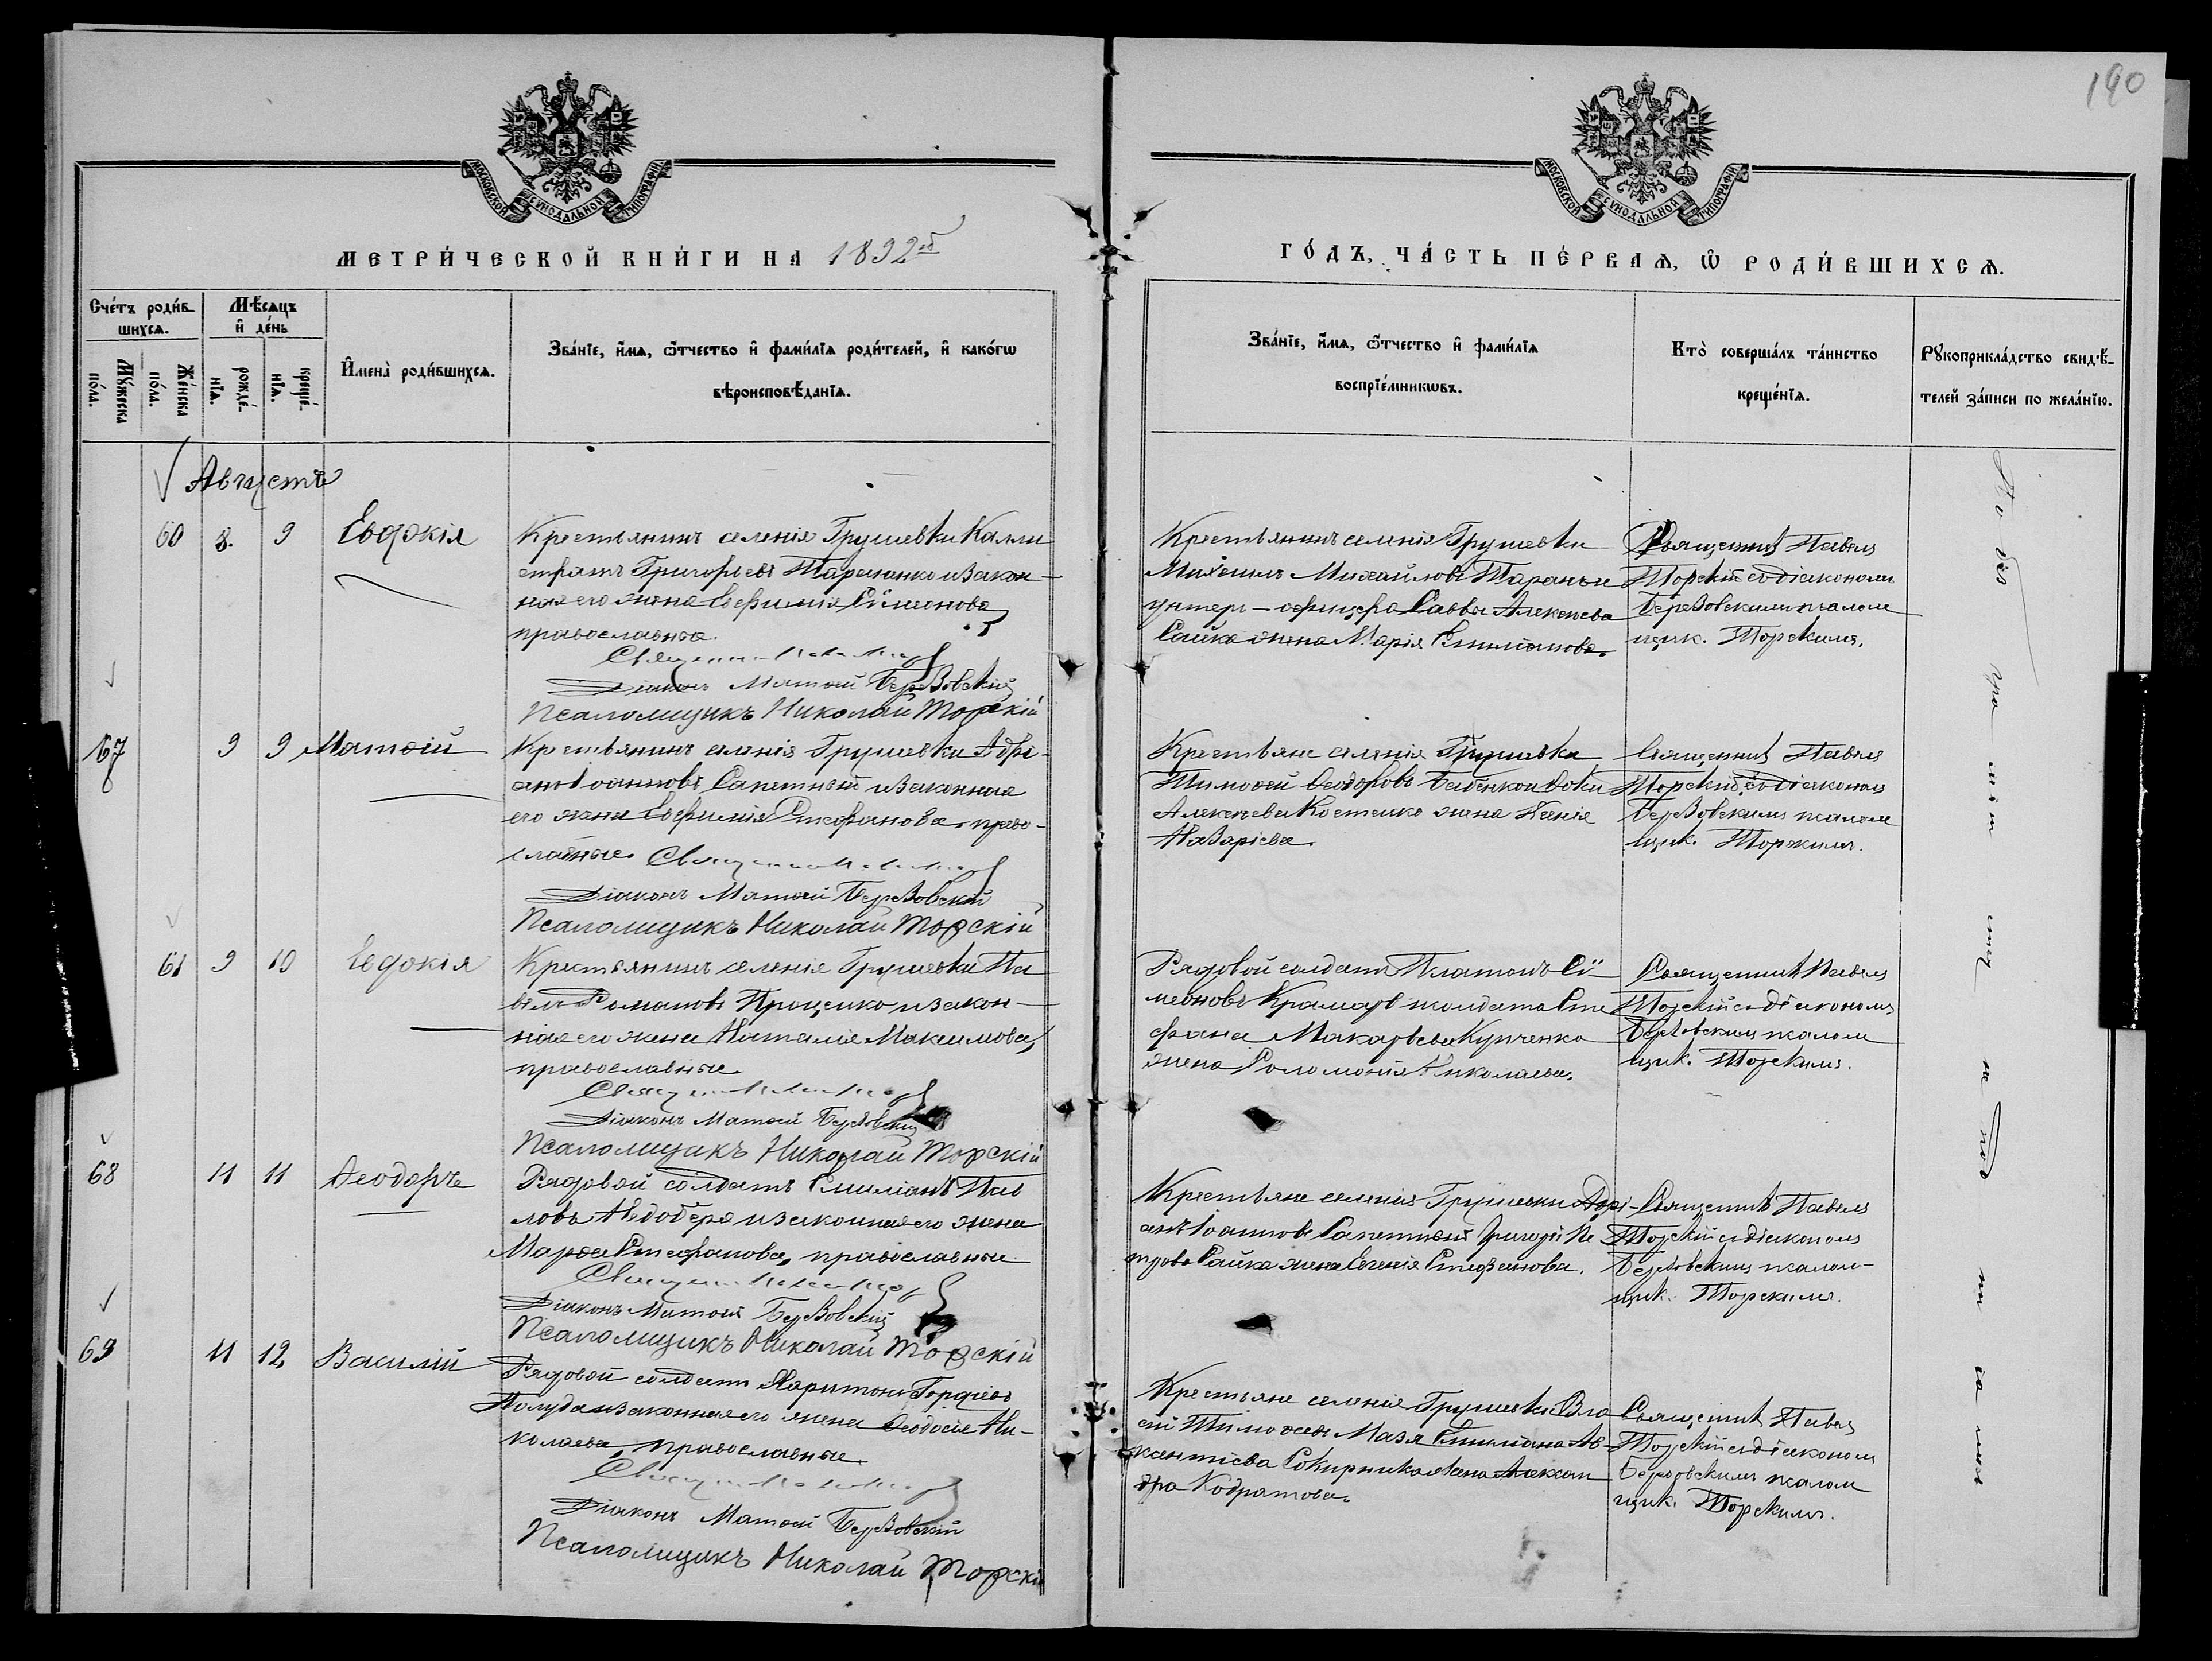 190
МОСКОВСКОЙ СѴНОДАЛЬНОЙ ТИПОГРАФІИ
МОСКОВСКОЙ СѴНОДАЛЬНОЙ ТИПОГРАФІИ
МЕТРИ́ЧЕСКОЙ КНИ́ГИ НА 1892й
ГО́ДЪ, ЧА́СТЬ ПЕ́РВАѦ, Ѡ҆ РОДИ́ВШИХСѦ.
Сче́тъ роди́в-
шихсѧ.
Мꙋ́жеска по́ла.
Же́нска по́ла.
Мѣ́сѧцъ
и҆ де́нь
рожде́-
нїѧ.
креще́-
нїѧ.
И҆мена̀ роди́вшихсѧ.
Зва́нїе, и҆́мѧ, ѻ҆́тчество и҆ фами́лїѧ роди́телей, и҆ како́гѡ
вѣроисповѣ́данїѧ.
Зва́нїе, и҆́мѧ, ѻ҆́тчество и҆ фами́лїѧ
воспрїе́мникѡвъ.
Кто̀ соверша́лъ та́инство
креще́нїѧ.
Рꙋкоприкла́дство свидѣ́-
телей за́писи по жела́нїю.
Августъ
60 8. 9 Евдокія
Крестьянинъ селенія Грушевки Калли
стратъ Григорьевъ Тараненко и закон-
ная его жена Евфимія Сѵмеонова
православные.
Священникъ
Діаконъ Матѳей Березовскій
Псаломщикъ Николай Торскій
Крестьянинъ селенія Грушевки
Михаилъ Михайловъ Таранъ и
унтеръ-офицера Саввы Алексѣева
Сайка жена Марія Емиліанова.
Священникъ Павелъ
Торскій съ діакономъ
Березовскимъ и псалом
щик. Торскимъ.
67 9 9 Матѳій
Крестьянинъ селенія Грушевки Адрі-
анъ Іоанновъ Сапетный и законная
его жена Евфимія Стефанова, право-
славные. Священникъ
Діаконъ Матѳей Березовскій
Псаломщикъ Николай Торскій
Крестьяне селенія Грушевки
Тимоѳей Ѳеодоровъ
Алексѣева Костенко жена Ксенія
Назаріева
Священникъ Павелъ
Торскій съ діакономъ
Березовскимъ псалом
щик. Торскимъ.
61 9 10 Евдокія
Крестьянинъ селенія Грушевки Па
велъ Романовъ Проценко и закон-
ная его жена Наталія Максимова,
православные
Священникъ
Діаконъ Матѳей Березовскій
Псаломщикъ Николай Торскій
Рядовой солдатъ Платонъ Сѵ-
меоновъ Крамаръ и солдата Сте
фана Макарьева Купченко
жена Соломонія Николаева.
Священникъ Павелъ
Торскій съ діакономъ
Березовскимъ псалом
щик. Торскимъ.
68 11 11 Ѳеодоръ
Рядовой солдатъ Емиліанъ Пав
ловъ и законная его жена
Марѳа Стефанова, православные
Священникъ
Діаконъ Матѳей Березовскій
Псаломщикъ Николай Торскій
Крестьяне селенія Грушевки Адрі-
анъ Іоанновъ Сапетный Григорія Пе
трова Сайка жена Евгенія Стефанова.
Священникъ Павелъ
Торскій съ діакономъ
Березовскимъ псалом-
щик. Торскимъ.
69 11 12 Василій
Рядовой солдатъ Харитонъ Гордіевъ
Полуда и законная его жена Ѳеодосія Ни-
колаева, православные
Священникъ
Діаконъ Матѳей Березовскій
Псаломщикъ Николай Торскій
Крестьяне селенія Грушевки Вла
сій Тимоѳеевъ Мазя Емиліана Ав-
ксентіева жена Алексан
дра Кодратова.
Священникъ Павелъ
Торскій съ діакономъ
Березовскимъ псалом
щик. Торскимъ.